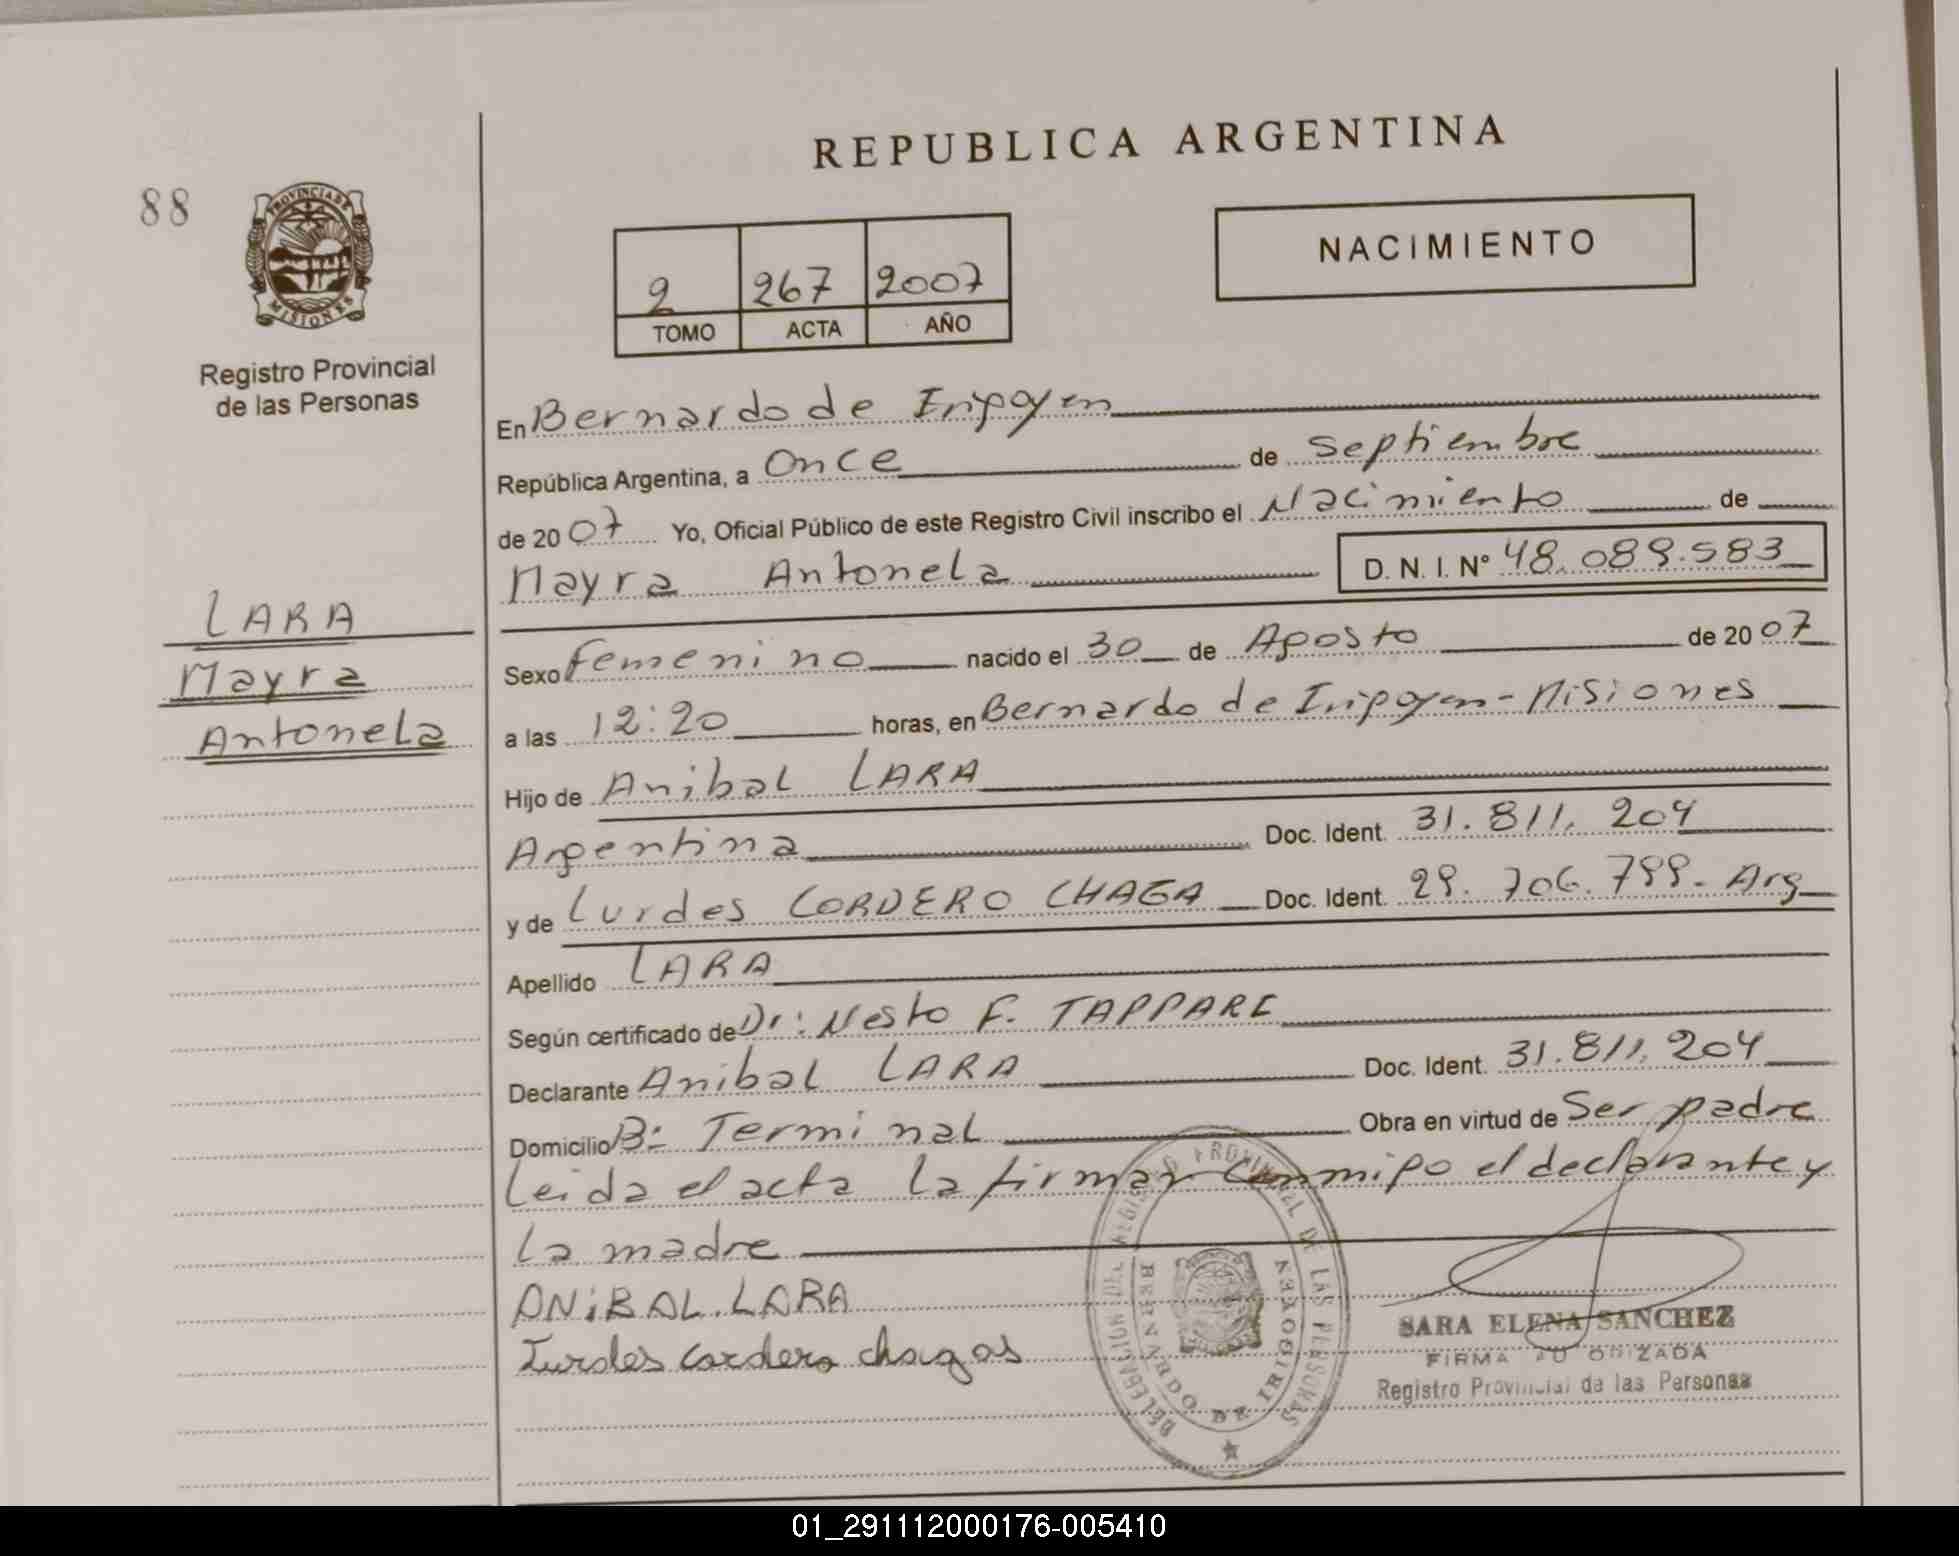 REPUBLICA ARGENTINA
88
PROVINCIA DE
MISIONES
NACIMIENTO
2 267 2007
TOMO ACTA AÑO
Registro Provincial
de las Personas
En Bernardo de Irigoyen
República Argentina, a Once de Septiembre
de 2007 Yo, Oficial Público de este Registro Civil inscribo el Nacimiento de
Mayra Antonela D. N. I. Nº 48.089.583
LARA
Mayra
Antonela
Sexo Femenino nacido el 30 de Agosto de 2007
a las 12:20 horas, en Bernardo de Irigoyen - Misiones
Hijo de Anibal LARA
Argentina Doc. Ident. 31.811.204
y de Lurdes CORDERO CHAGA Doc. Ident. 29.706.799 - Arg
Apellido LARA
Según certificado de Dr: Nesto F. TAPPARE
Declarante Anibal LARA Doc. Ident. 31.811.204
Domicilio Bº Terminal Obra en virtud de Ser padre
Leida el acta la firman conmigo el declarante y
la madre
ANiBAL.LARA
Lurdes cordero chagas
DELEGACION DEL REGISTRO PROVINCIAL DE LAS PERSONAS
BERNARDO DE IRIGOYEN
SARA ELENA SANCHEZ
FIRMA AUTORIZADA
Registro Provincial de las Personas
01_291112000176-005410